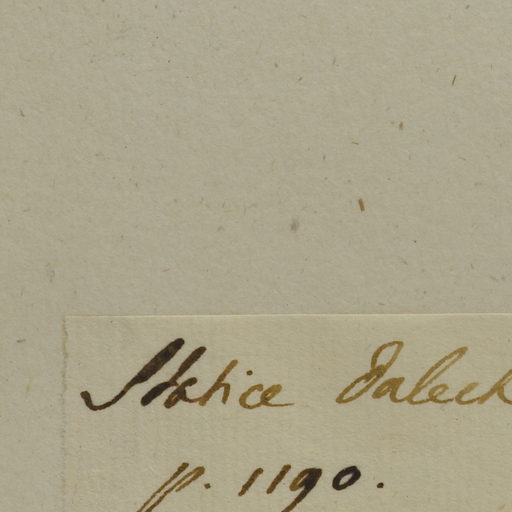 Statice Dalech
p. 1190.